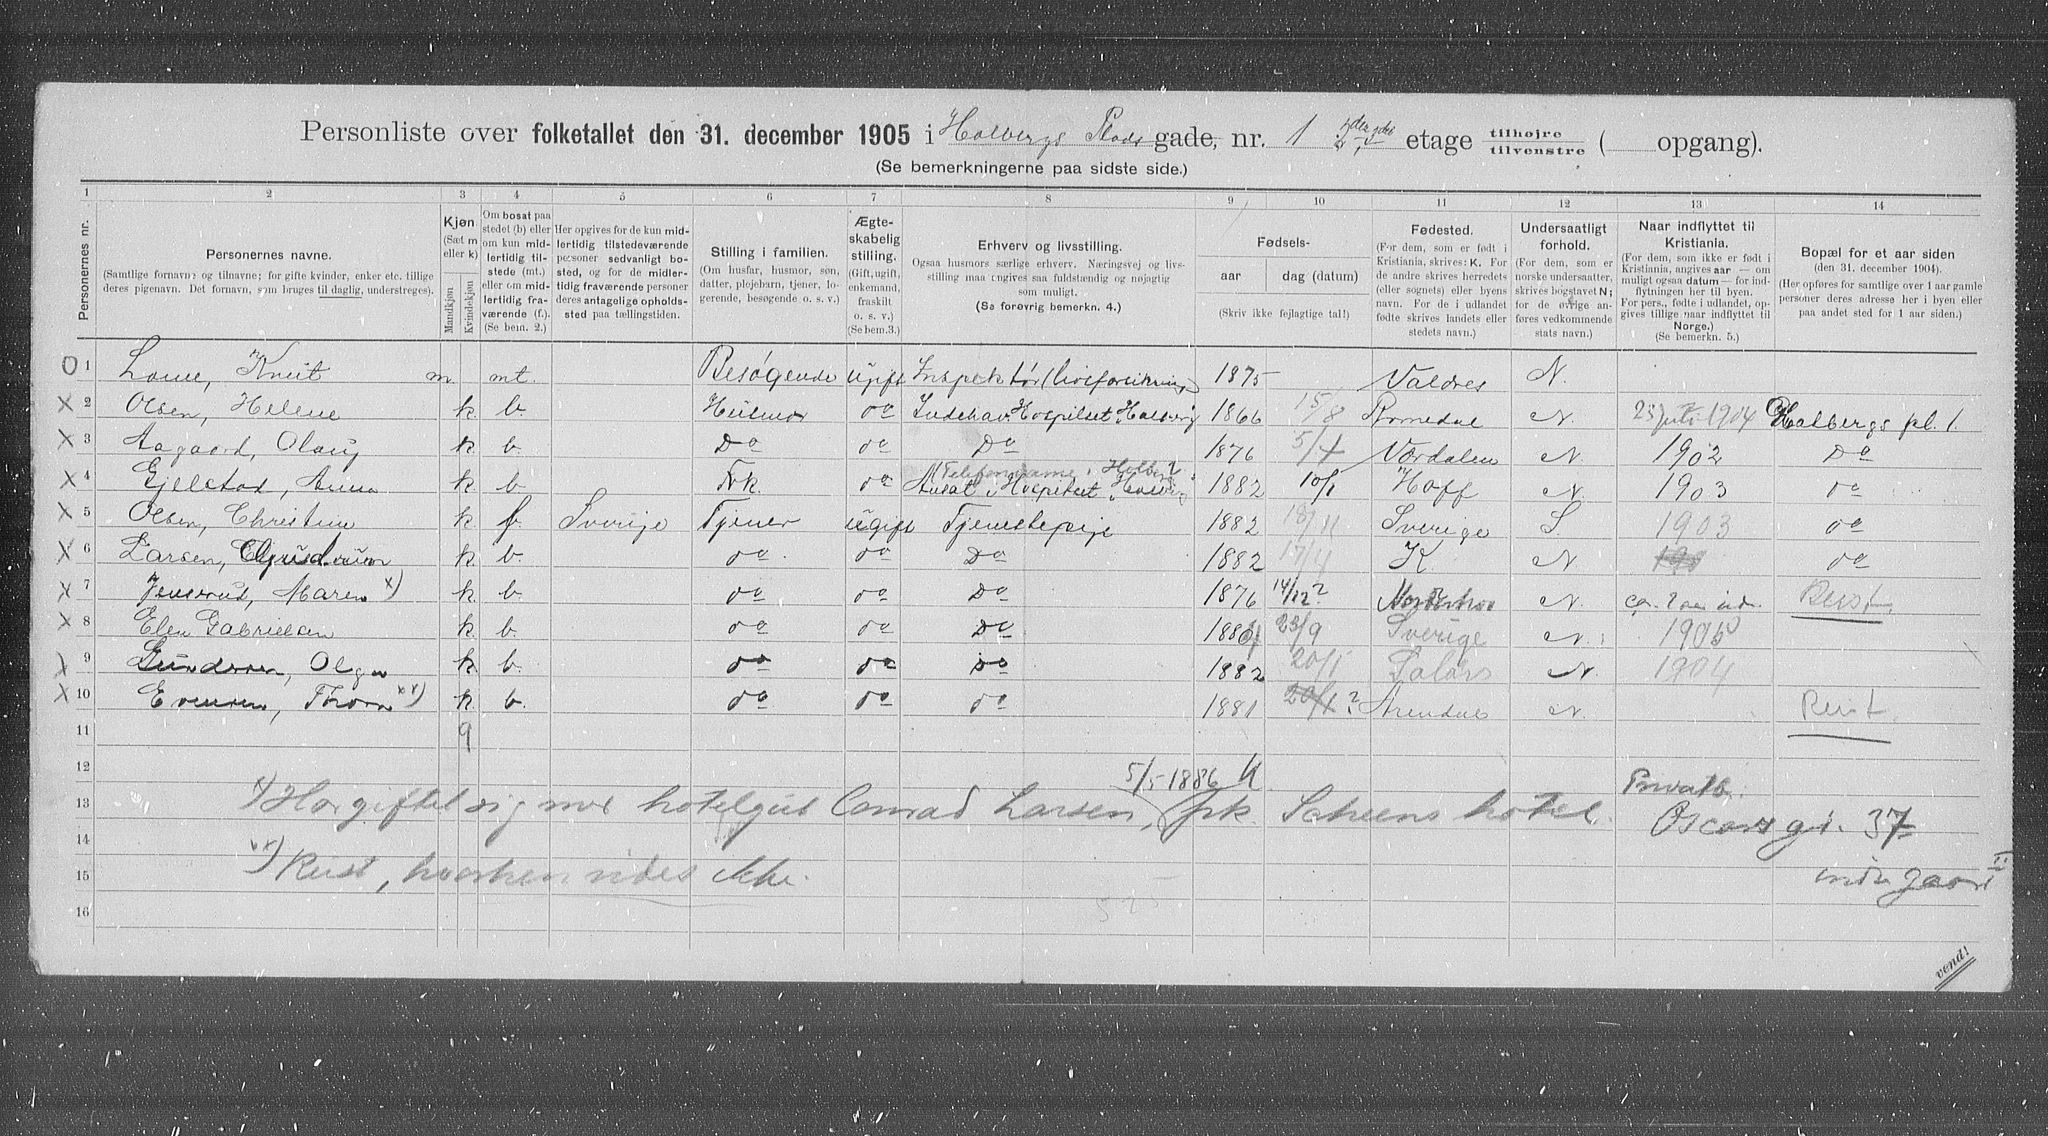 Personliste over folketallet den 31. december 1905 i Holbergs Plads gade, nr. 1 etage tilhøjre tilvenstre ( opgang).
(Se bemerkningerne paa sidste side.)
1 2 3 4 5 6 7 8 9 10 11 12 13 14
Personernes nr.
Personernes navne.
(Samtlige fornavne og tilnavne; for gifte kvinder, enker etc. tillige deres pigenavn. Det fornavn, som bruges til daglig, understreges).
Kjøn
(Sæt m eller k)
Mandkjøn
Kvindekjøn
Om bosat paa stedet (b) eller om kun midlertidig tilstede (mt.) eller om midlertidig fraværende (f.) (Se bem. 2.)
Her opgives for de kun midlertidig tilstedeværende personer sedvanlig bosted, og for de midlertidig fraværende personer deres antagelige opholdssted paa tællingstiden.
Stilling i familien.
(Om husfar, husmor, søn, datter, plejebarn, tjener, logerende, besøgende o. s. v.)
Ægteskabelig stilling.
(Gift, ugift, enkemand, fraskilt o. s. v.) (Se bem.3.)
Erhverv og livsstilling.
Ogsaa husmors særlige erhverv. Næringsvej og livsstilling maa angives saa fuldstændig og nøjagtig som muligt.
(Se forøvrig bemerkn. 4.)
Fødsels-
aar dag (datum)
(Skriv ikke fejlagtige tal!)
Fødested.
(For dem, som er født i Kristiania, skrives: K. For de andre skrives herredets (eller sognets) eller byens navn. For de i udlandet fødte skrives landets eller stedets navn.)
Undersaatligt forhold.
(For dem, som er norske undersaatter, skrives bogstavet N; for de øvrige anføres vedkommende stats navn.)
Naar indflyttet til Kristiania.
(For dem, som ikke er født i Kristiania, angives aar — om muligt ogsaa datum — for indflytningen her til byen. For pers., fødte i udlandet, opgives tillige naar indflyttet til Norge.)
(Se bemerkn. 5.)
Bopæl for et aar siden
(den 31. december 1904).
(Her opføres for samtlige over 1 aar gamle personer deres adresse her i byen eller paa andet sted for 1 aar siden.)
O 1 Knut m. mt. Besøgende ugift Inspektør (livsforsikring) 1875 Valdres N.
X 2 Olsen, Helene k. b. Husmor do Indehav. Hospitset Holberg 1866 15/8 Romedal N. 1904 Holbergs pl. 1.
X 3 Aagaard, Olaug k. b. Do do Do 1876 5/4 Værdalen N. 1902 Do
X 4 Gjelstad, Anna k. b. Frk. do Telefondame i Holberg Ansat i Hospitset Holberg 1882 10/1 Hoff N. 1903 do
X 5 Olsen, Christine k. f. Sverige Tjener ugift Tjenestepige 1882 18/11 Sverige S. 1903 do
X 6 Larsen, Gudrun k. b. do do Do 1882 17/4 K. N do
X 7 Maren x) k. b. do do Do 1876 14/12? N. Reist.
X 8 Elen Gabrielsen k. b. do do Do 23/9 Sverige N. 1905
X 9 Gundersen, Olga k. b. do do Do 1882 20/1 N. 1904
X 10 Evensen, xx) k. b. do do do 1881 20/1? Arendal N. Reist.
11 9
12 5/5 1886 K
13 x) Har giftet sig med hotelgut Conrad Larsen, frk. Scheens hotel. Privatb. Oscarsgt. 37
14
15 xx) Reist, hvorhen vides ikke. II
16
vend!